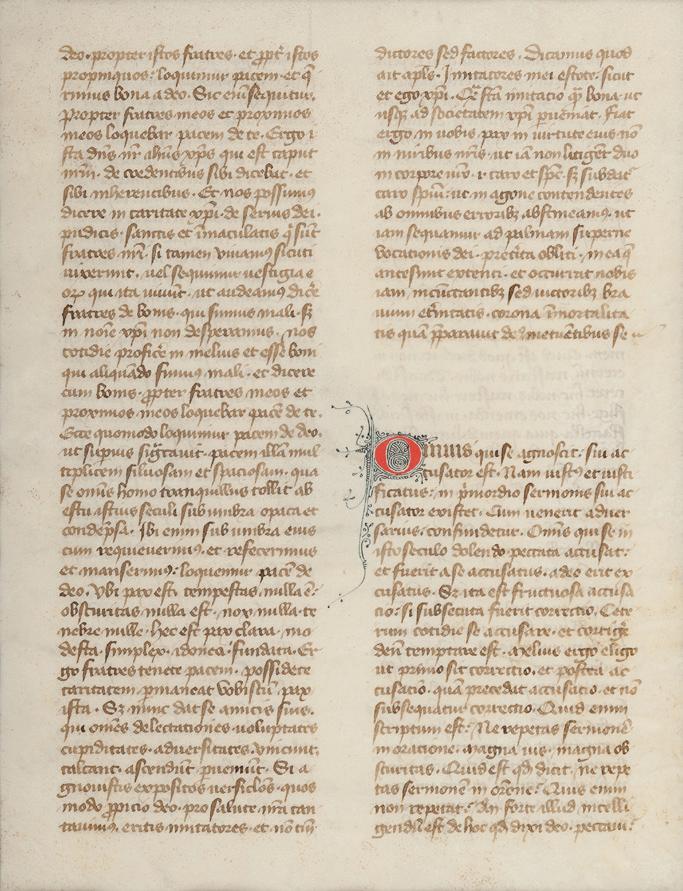 deo. propter istos fratres. et ppt istos
propinquos: loquimur pacem. et q̄
rimus bona a deo. Sic em̄ sequitur.
Propter fratres meos et proximos
meos loquebar pacem de te. Ergo i
sta dn̄s nr̄ ihūs xp̄s qui est caput
nr̄m. de credentibus sibi dicebat. et
sibi inherentibus. Et nos possumus
dicere in caritate xp̄i. de seruis dei.
pudicis. sanctis et īmaculatis q̄ sūt
fratres nr̄i. si tamen viuamꝰ sicuti
uixerunt. uel sequimur uestigia e
oꝝ qui ita viuūt. ut audeamꝰ dic̄e
fratres de bonis. qui sumus mali. sꝫ
in noīe xp̄i non desperamus. nos
cotidie profic̄e in melius et esse boni
qui aliquādo fuimꝰ mali. et dicere
cum bonis. ꝓpter fratres meos et
proximos meos loquebar pacē de te.
Ecce quomodo loquimur pacem de deo.
ut supius siḡtauit. pacem illā mul
tiplicem siluosam et spaciosam. qua
se omīs homo tranquillus tollit ab
estu istius seculi sub umbra opaca et
condēpsa. Ibi enim sub umbra eius
cum requieuerimꝰ. et refecerimus
et manserimꝰ: loquemur pacē de
deo. Vbi pax est. tempestas nulla ē:
obscuritas nulla est. nox nulla. te
nebre nulle. hec est pax clara. mo
desta. simplex. idonea. fundata. Er
go fratres tenete pacem. possidete
caritatem. pmaneat vobiscū pax
ista. Sꝫ nunc dat se amicis suis.
qui om̄es delectationes. voluptates
cupiditates. aduersitates vincunt.
calcant. ascendūt. pueniūt. Si a
gnouistis expositos versiclos. quos
modo ꝓpicio deo. pro salute. nr̄a can
tauimꝰ. eritis imitatores. et. nō tm̄
dictores sed factores. Dicamus quod
ait apl̄s. Imitatores mei estote: sicut
et ego xp̄i. Cū sc̄a imitatio q̄ bona. ut
usqꝫ ad societatem xp̄i pueniat. Fiat
ergo in uobis pax in virtute eius nō
in viribus nr̄is. ut iā non litigent duo
in corpore nr̄o. i. caro et sp̄c. sꝫ subdat̄
caro sp̄ui: ut in agone contendentes
ab omnibus erroribꝫ abstineamꝰ. ut
iam sequamur ad palmam supernē
vocationis dei. pret̄ita obliti. in ea q̄
ante sunt extenti. et occurrat nobis
iam. in cūctantibꝫ sed victoribꝫ bra
uium et̄nitatis. corona īmortalita
tis quā p̄parauit deꝰ metuētibus se
Omnis qui se agnoscit. sui ac
cusator est. Nam iustꝰ et iusti
ficatus: in p̄mordio sermonis sui ac
cusator existet. Cum uenerit aduer
sarius: confundetur. Om̄is qui se in
isto seculo dolendo peccata accusat:
et fuerit a se accusatus. a deo erit ex
cusatus. Sꝫ ita est fructuosa accusa
cio: si subsecuta fuerit correctio. Cete
rum cotidie se accusare. et corrige
deū temptare est. Melius ergo eligo
ut primo sit correctio. et postea ac
cusatio. quā precedat accusatio. et nō
subsequatur correctio. Quid enim
scriptum est: Ne repetas sermonē
in oratione. magna uis. magna ob
scuritas. Quid est qd̄ dicit. ne repe
tas sermonē in orōne: Quis enim
non repetat: An forte illud intelli
gendū est de hoc qd̄ dixi deo. peccaui: